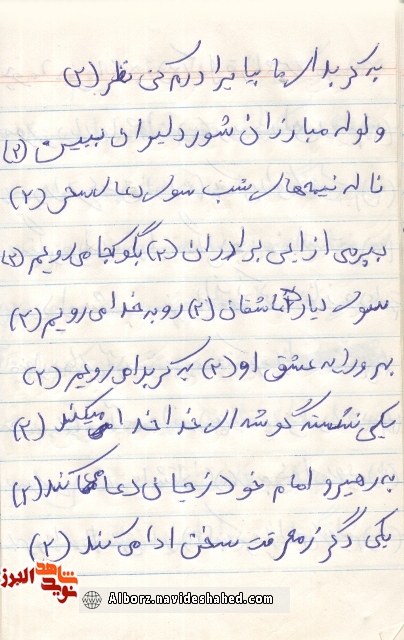 به کربلای ما بیا برادرم کن نظر (۲)
ولوله مبارزان شور دلیران ببین (۲)
ناله نیمه‌های شب سوی دعای سحر (۲)
بپرسی از این برادران (۲) بگو کجا می‌رویم (۲)
سوی دیار عاشقان (۲) رو به خدا می‌رویم (۲)
بهر ولا به عشق او (۲) به کربلا می‌رویم (۲)
یکی نشسته گوشه‌ای خدا خدا میکند (۲)
به رهبر و امام خود ز جان دعا می‌کند (۲)
یکی دگر ز معرفت سخن ادا می‌کند (۲)
شاهد
نوید
البرز
Alborz.navideshahed.com